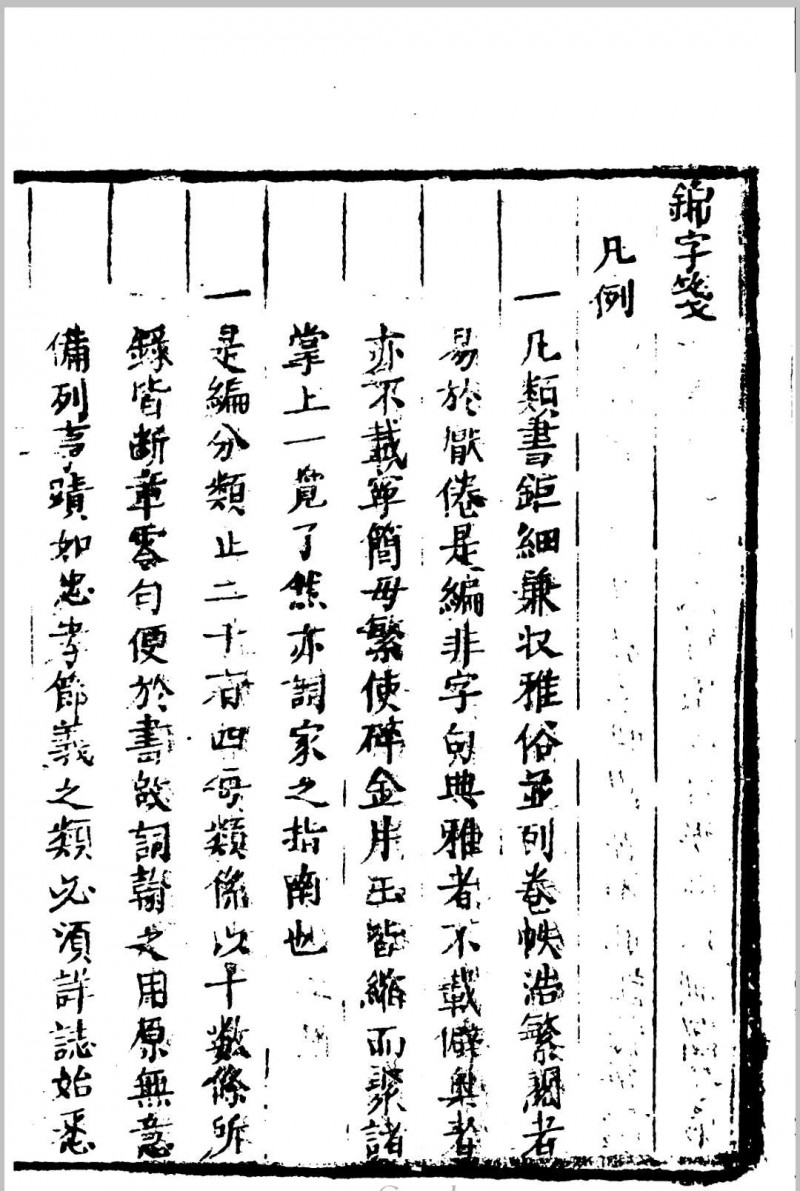 錦字箋
凡例
一凡類書鉅細兼収雅俗並列卷帙浩繁觀者
易於厭倦是編非字句典雅者不載僻奥者
亦不載寧簡毋繁使碎金片玉皆縮而聚諸
掌上一覽了然亦詞家之指南也
一是編分類止二十有四每類係以十數條所
錄皆斷章零句便於書啟詞翰之用原無意
備列事蹟如忠孝節義之類必須詳誌始悉